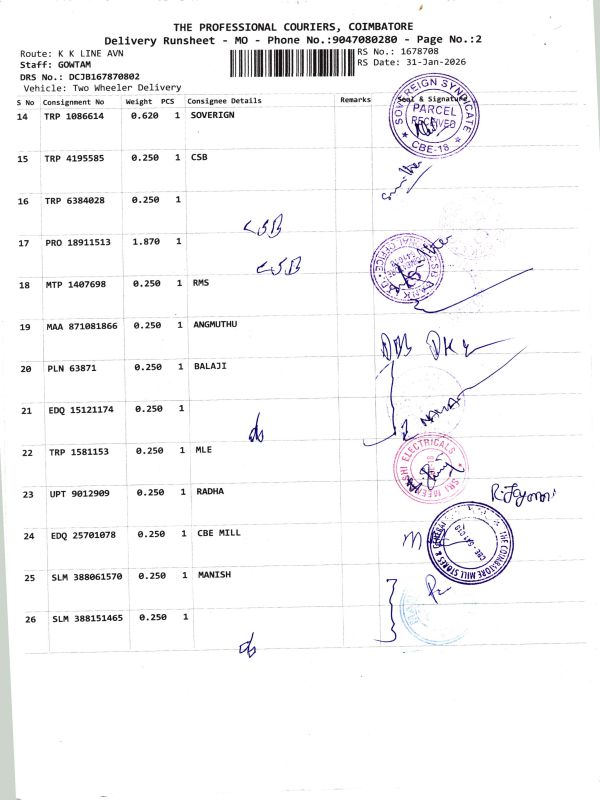 THE PROFESSIONAL COURIERS, COIMBATORE
Delivery Runsheet - MO - Phone No.:9047080280 - Page No.:2
Route: K K LINE AVN
RS No.: 1678708
Staff: GOWTAM
RS Date: 31-Jan-2026
DRS No.: DCJB167870802
Vehicle: Two Wheeler Delivery
S No Consignment No Weight PCS Consignee Details Remarks Seal & Signature
14 TRP 1086614 0.620 1 SOVERIGN
SOVEREIGN SYNDICATE
PARCEL
RECEIVED
CBE-18
15 TRP 4195585 0.250 1 CSB
16 TRP 6384028 0.250 1
CSB
17 PRO 18911513 1.870 1
CSB
18 MTP 1407698 0.250 1 RMS
19 MAA 871081866 0.250 1 ANGMUTHU
20 PLN 63871 0.250 1 BALAJI
21 EDQ 15121174 0.250 1
do
22 TRP 1581153 0.250 1 MLE
SRI MEENAKSHI ELECTRICALS
23 UPT 9012909 0.250 1 RADHA
24 EDQ 25701078 0.250 1 CBE MILL
THE COIMBATORE MILL STORES &
25 SLM 388061570 0.250 1 MANISH
26 SLM 388151465 0.250 1
do